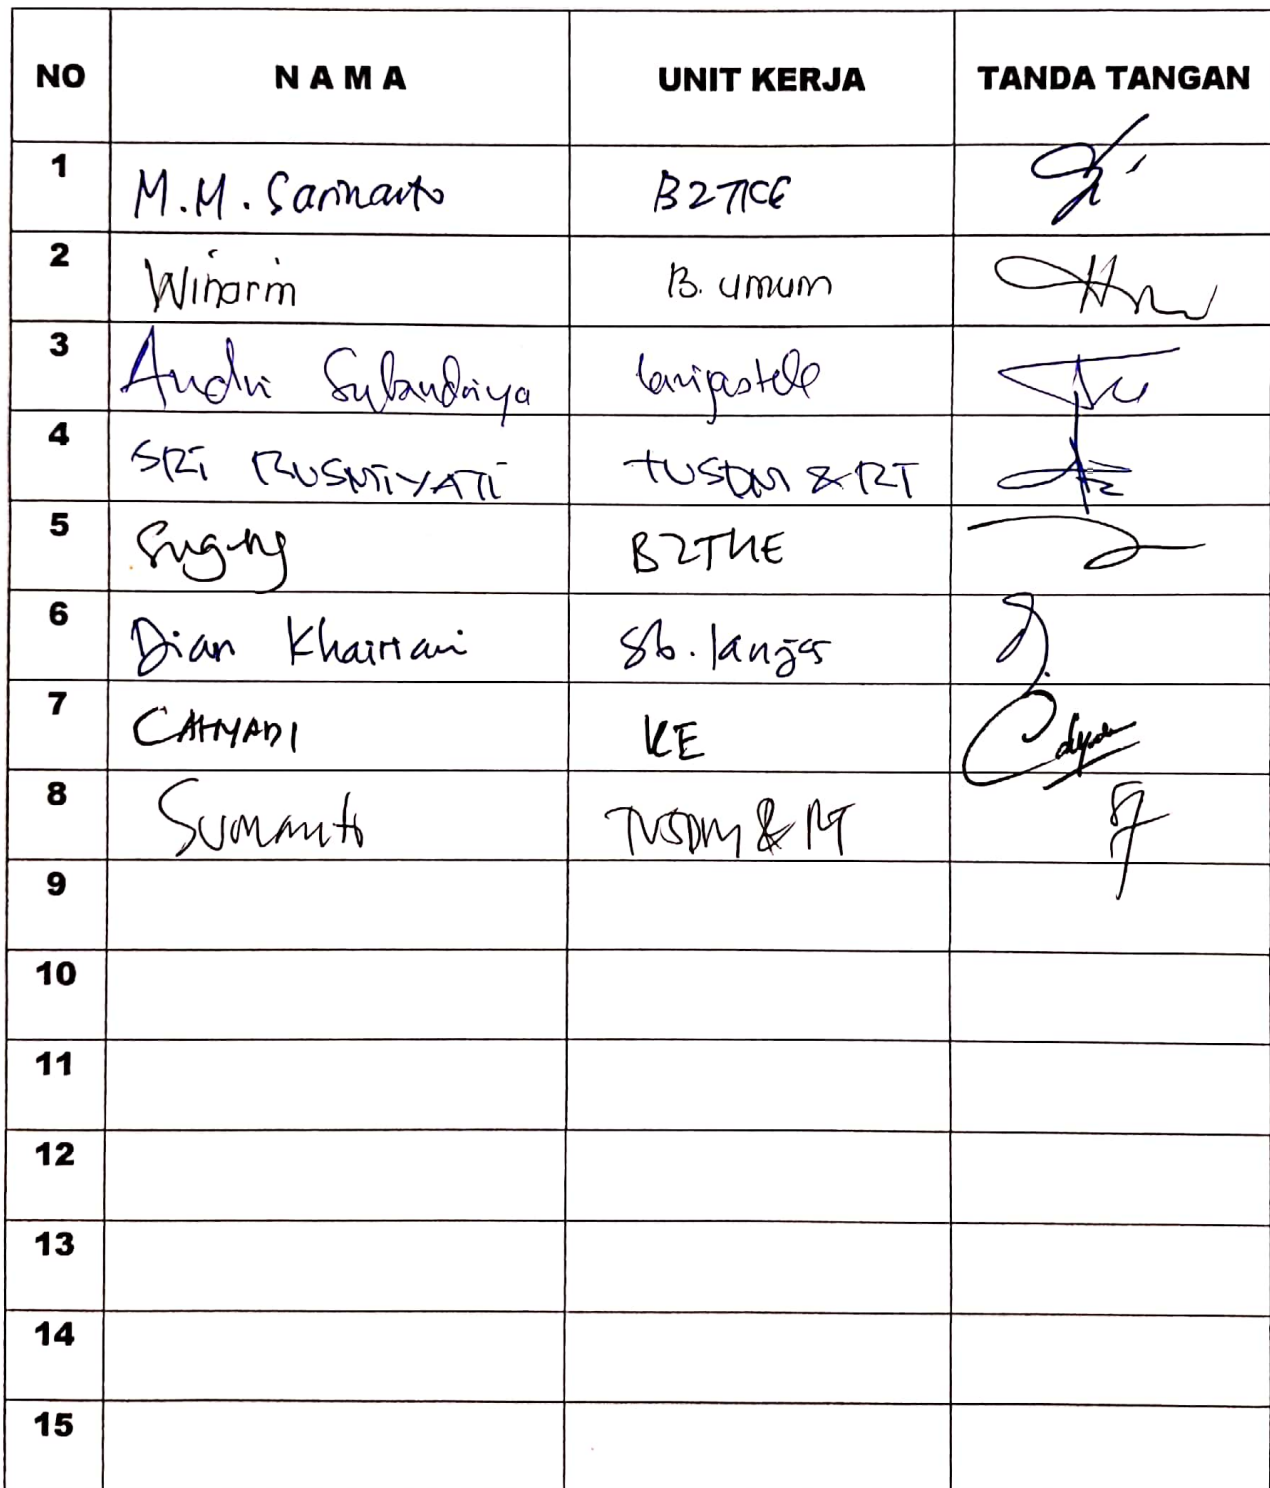 NO N A M A UNIT KERJA TANDA TANGAN
1 M.M. Sarinanto B2TKE
2 Winarni B. Umum
3 Andri Subandriya
4 SRI RUSMIYATI TUSDM & RT
5 Sugeng B2TKE
6 Dian Khairiani
7 CAHYADI KE
8 Sumanto TUSDM & RT
9
10
11
12
13
14
15